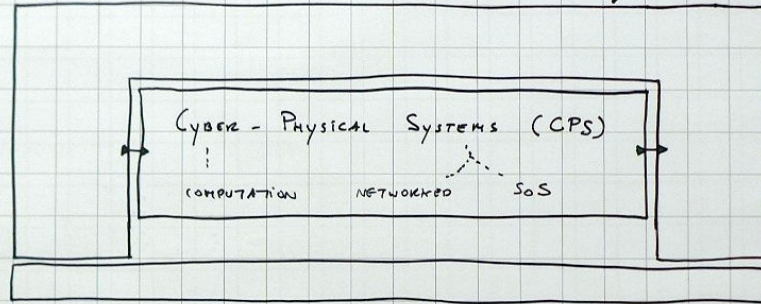 Cyber - Physical Systems (CPS)
COMPUTATION NETWORKED SoS